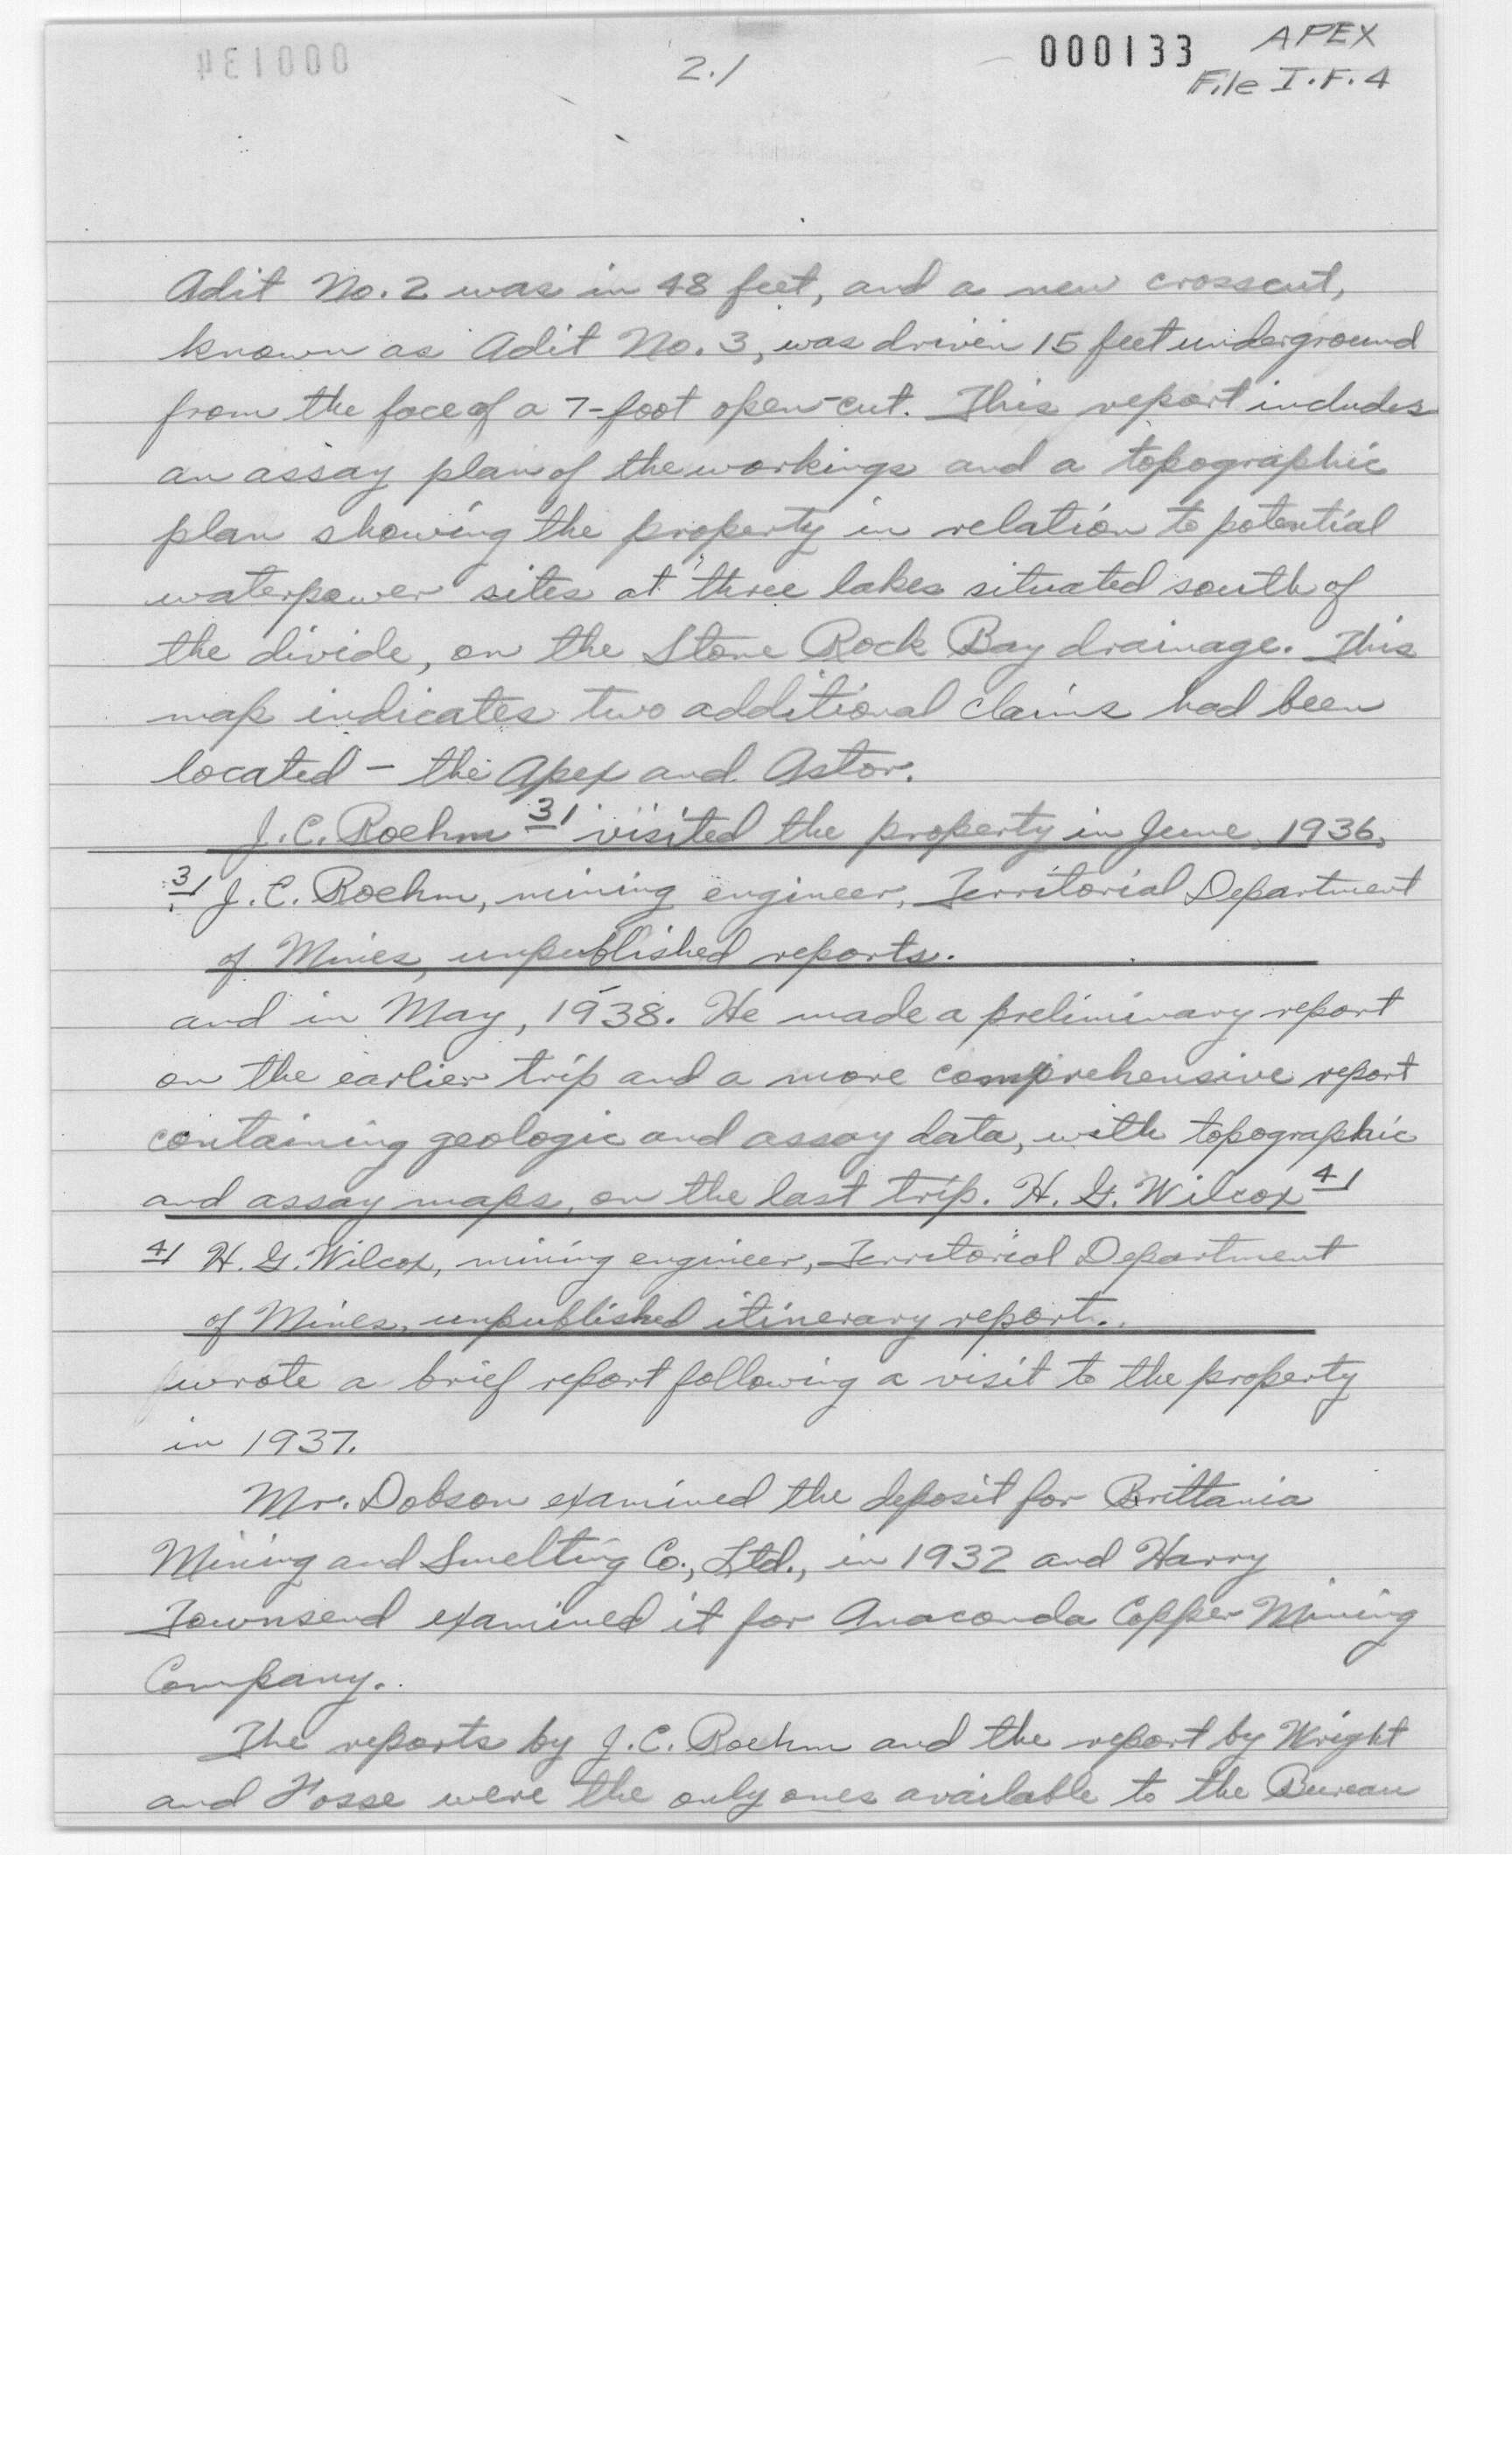 2./
000133 APEX
File I.F.4
Adit No. 2 was in 48 feet, and a new crosscut,
known as Adit No. 3, was driven 15 feet underground
from the face of a 7-foot open-cut. This report includes
an assay plan of the workings and a topographic
plan showing the property in relation to potential
waterpower sites at three lakes situated south of
the divide, on the Stone Rock Bay drainage. This
map indicates two additional claims had been
located - the Apex and Astor.
J.C. Roehm 3/ visited the property in June, 1936,
3/ J.C. Roehm, mining engineer, Territorial Department
of Mines, unpublished reports.
and in May, 1938. He made a preliminary report
on the earlier trip and a more comprehensive report
containing geologic and assay data, with topographic
and assay maps, on the last trip. H. G. Wilcox 4/
4/ H. G. Wilcox, mining engineer, Territorial Department
of Mines, unpublished itinerary report.
wrote a brief report following a visit to the property
in 1937.
Mr. Dobson examined the deposit for Brittania
Mining and Smelting Co., Ltd., in 1932 and Harry
Townsend examined it for Anaconda Copper Mining
Company.
The reports by J.C. Roehm and the report by Wright
and Fosse were the only ones available to the Bureau